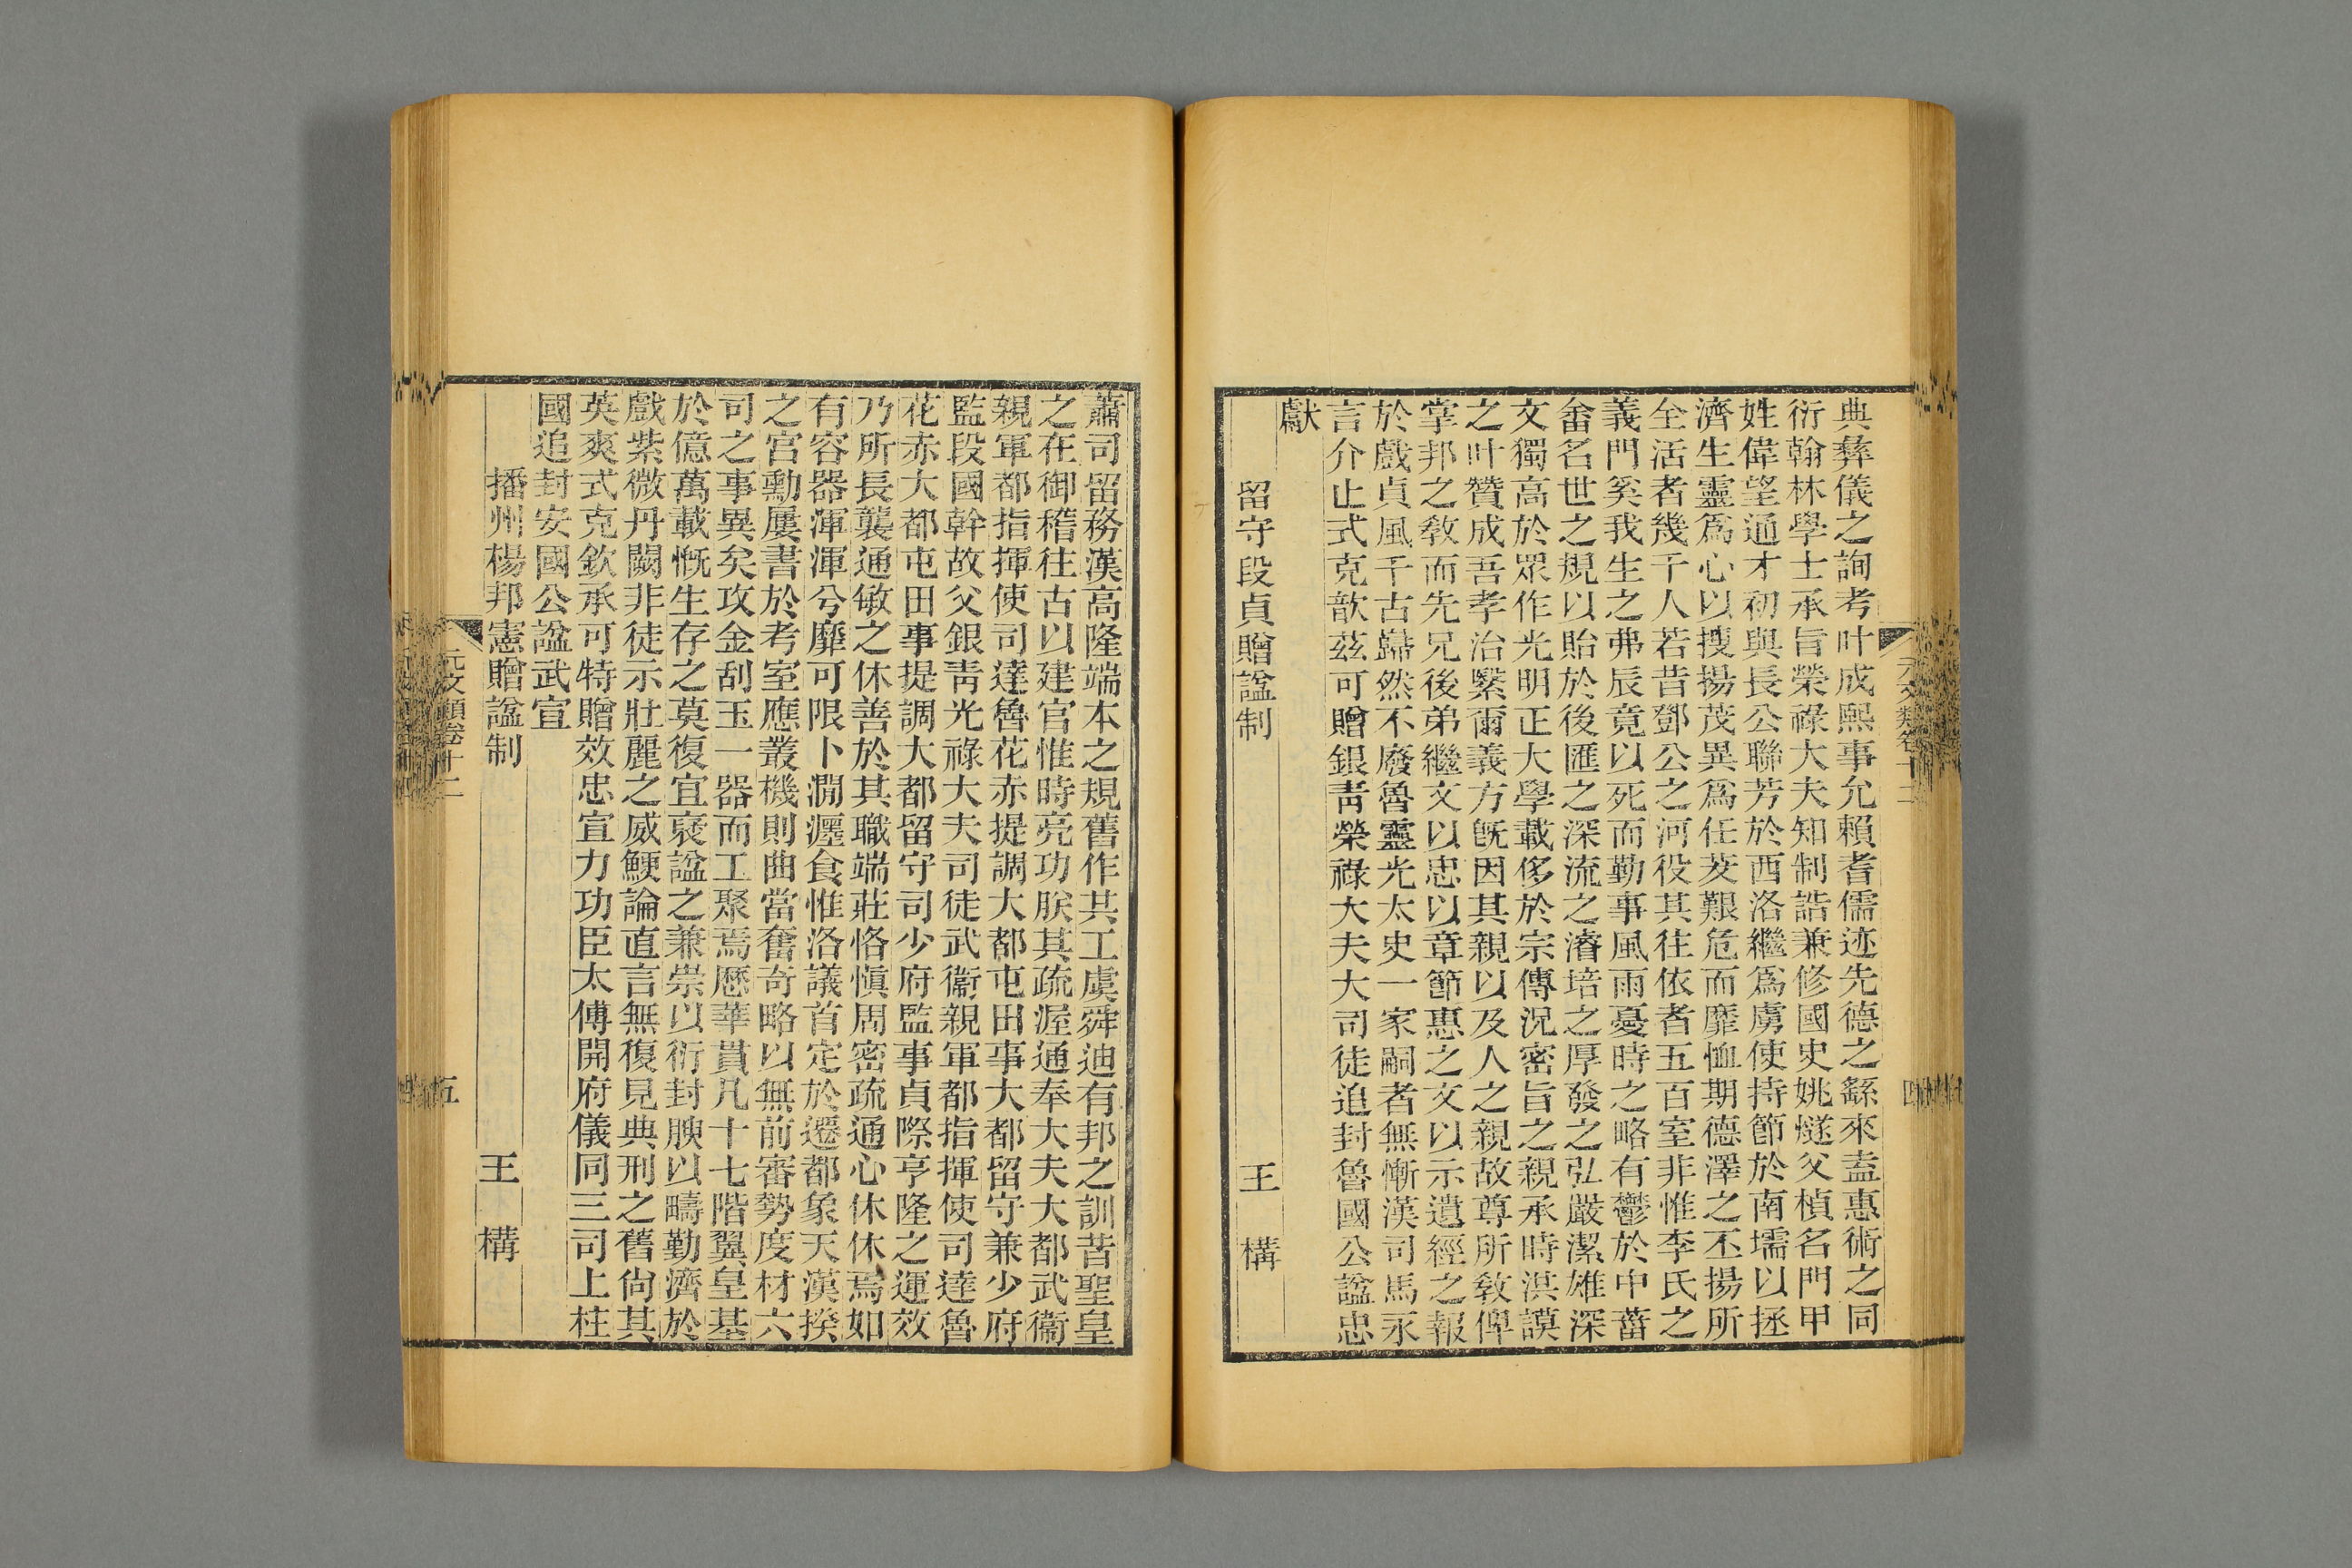 典彝儀之詢考叶成熙事允賴耆儒迹先德之繇來盍惠術之同
衍翰林學士承旨榮祿大夫知制誥兼修國史姚燧父楨名門甲
姓偉望通才初與長公聯芳於西洛繼爲虜使持節於南壖以拯
濟生靈爲心以搜揚茂異爲任茇艱危而靡恤期德澤之丕揚所
全活者幾千人若昔鄧公之河役其往依者五百室非惟李氏之
義門奚我生之弗辰竟以死而勤事風雨憂時之略有鬱於中蓄
畬名世之規以貽於後匯之深流之濬培之厚發之弘嚴潔雄深
文獨高於眾作光明正大學載侈於宗傳況密旨之親承時洪謨
之叶贊成吾孝治繄爾義方旣因其親以及人之親故尊所敎俾
掌邦之敎而先兄後弟繼文以忠以章節惠之文以示遺經之報
於戲貞風千古巋然不廢魯靈光太史一家嗣者無慚漢司馬永
言介止式克歆茲可贈銀靑榮祿大夫大司徒追封魯國公諡忠
獻
留守段貞贈諡制　王　構
元文類卷十二　四
蕭司留務漢高隆端本之規舊作共工虞舜迪有邦之訓昔聖皇
之在御稽往古以建官惟時亮功朕其疏渥通奉大夫大都武衞
親軍都指揮使司達魯花赤提調大都屯田事大都留守兼少府
監段國幹故父銀靑光祿大夫司徒武衞親軍都指揮使司達魯
花赤大都屯田事提調大都留守司少府監事貞際亨隆之運效
乃所長襲通敏之休善於其職端莊恪愼周密疏通心休休焉如
有容器渾渾兮靡可限卜澗瀍食惟洛議首定於遷都象天漢揆
之宮勳屢書於考室應叢機則曲當奮奇略以無前審勢度材六
司之事異矣攻金刮玉一器而工聚焉歷華貫凡十七階翼皇基
於億萬載慨生存之莫復宜裒諡之兼崇以衍封腴以疇勤濟於
戲紫微丹闕非徒示壯麗之威鯁論直言無復見典刑之舊尙其
英爽式克欽承可特贈效忠宣力功臣太傅開府儀同三司上柱
國追封安國公諡武宣
播州楊邦憲贈諡制　王　構
元文類卷十二　五